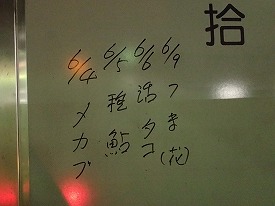 拾
6/9 フま(花)
6/6 活タコ
6/5 稚鮎
6/4 メカブ